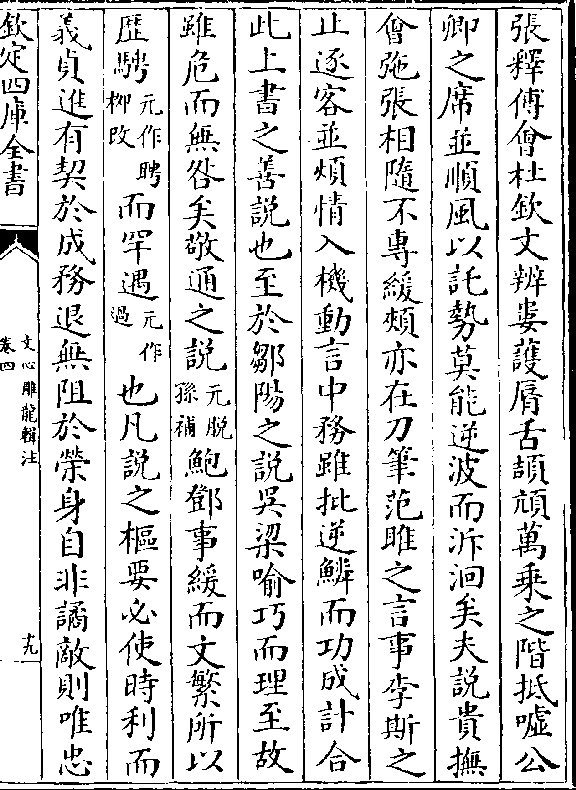 張釋傅會杜欽文辨婁護脣舌頡頏萬乗之階抵嘘公
卿之席並順風以託勢莫能逆波而泝洄矣夫説貴撫
會弛張相隨不專緩頰亦在刀筆范雎之言事李斯之
止逐客並煩情入機動言中務雖批逆鱗而功成計合
此上書之善説也至於鄒陽之説吳梁喻巧而理至故
雖危而無咎矣敬通之説元脱孫補鮑鄧事緩而文繁所以
歴騁元作聘柳改而罕遇元作過也凡説之樞要必使時利而
義貞進有契於成務退無阻於榮身自非譎敵則唯忠
欽定四庫全書
文心雕龍輯注
卷四
十九